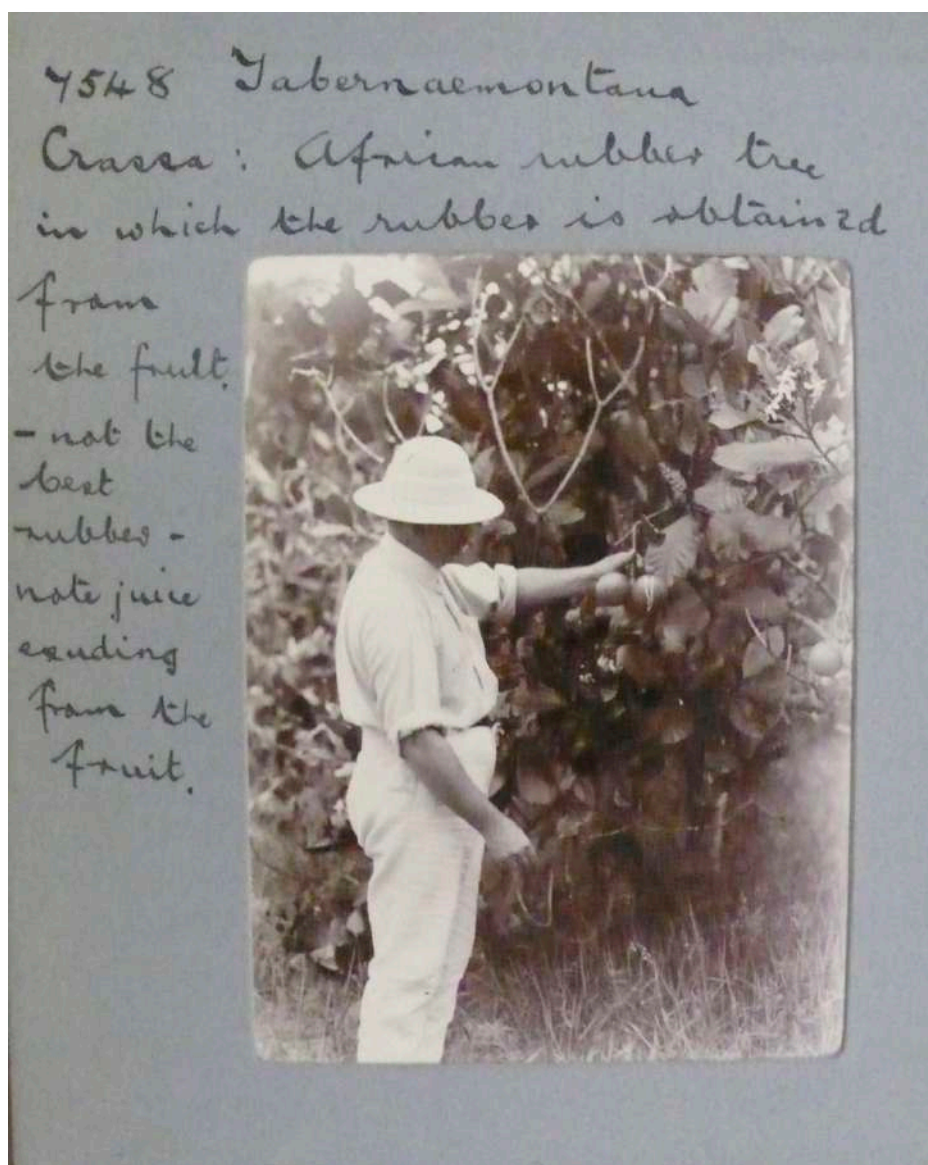 7548 Tabernaemontana
Crassa: African rubber tree
in which the rubber is obtained
from
the fruit.
- not the
best
rubber -
note juice
exuding
from the
fruit.